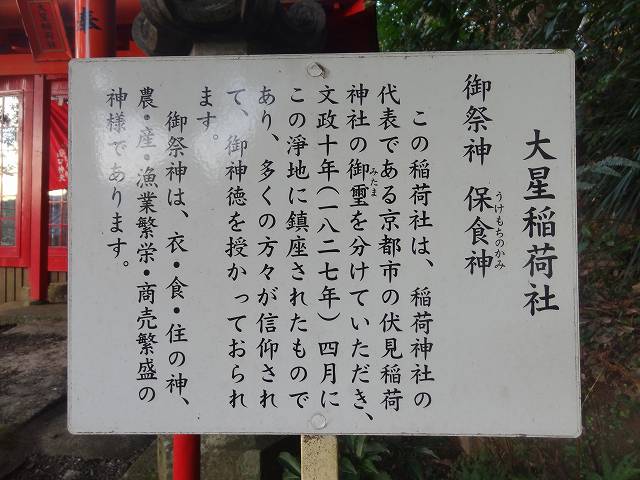 大星稲荷社
御祭神　保食神
うけもちのかみ
この稲荷社は、稲荷神社の
代表である京都市の伏見稲荷
神社の御璽を分けていただき、
みたま
文政十年（一八二七年）四月に
この浄地に鎮座されたもので
あり、多くの方々が信仰され
て、御神徳を授かっておられ
ます。
御祭神は、衣・食・住の神、
農・産・漁業繁栄・商売繁盛の
神様であります。